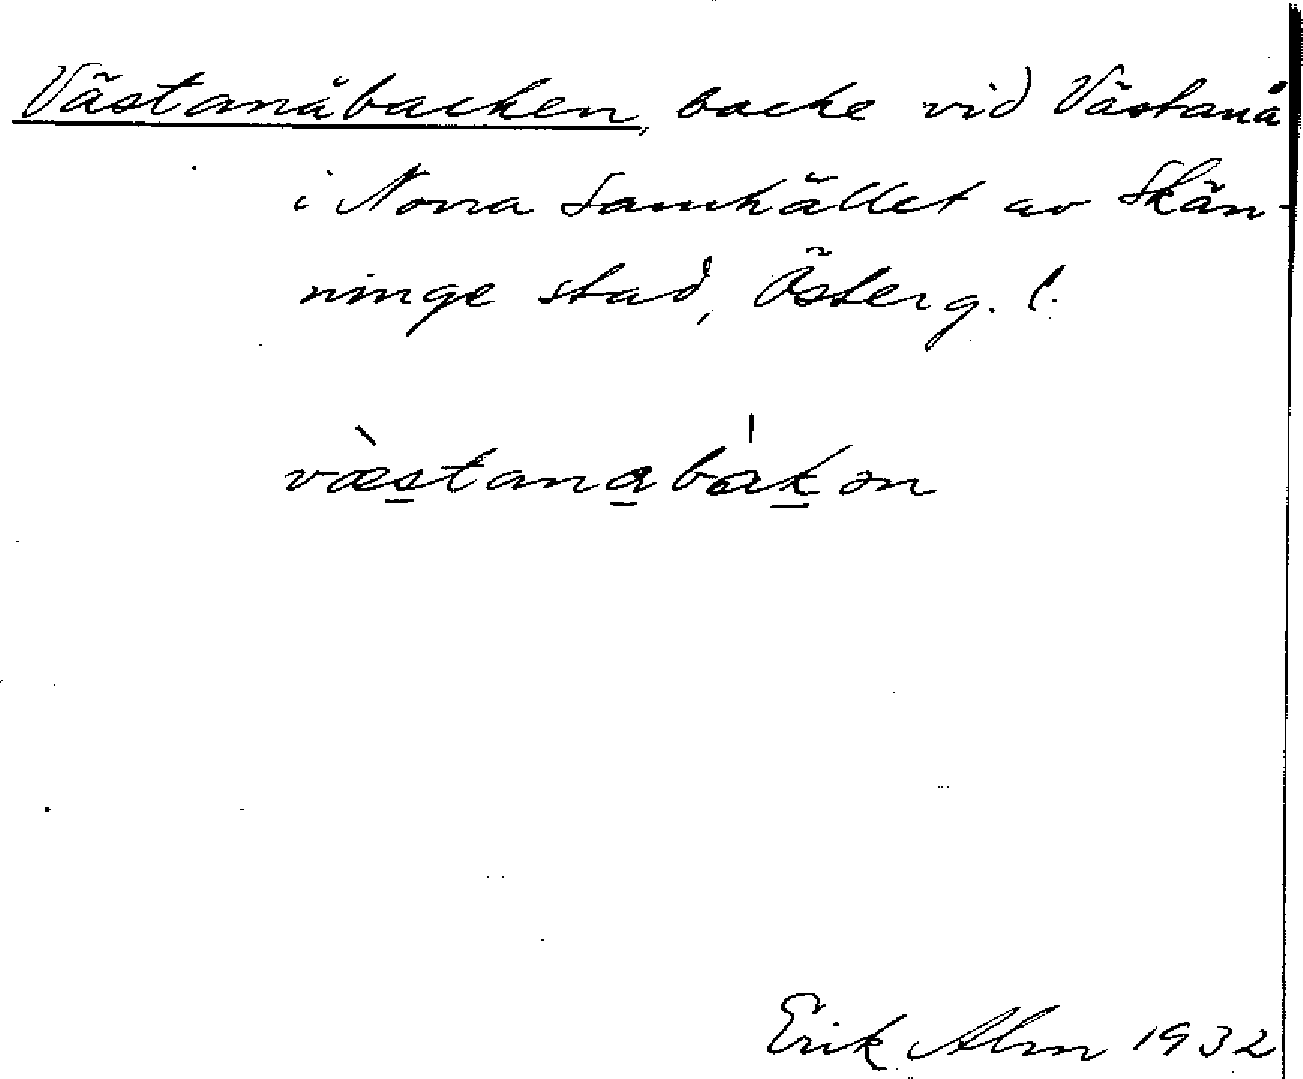 Västanåbacken, backe vid Västanå
i Norra Samhället av Skän-
ninge stad, Österg. l.
væ̀stanabák ən
Erik Alm 1932